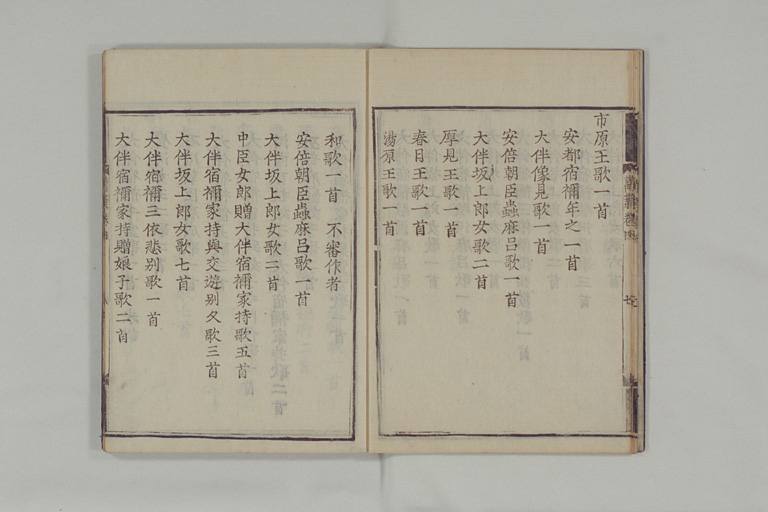 市原王歌一首
安都宿禰年之一首
大伴像見歌一首
安倍朝臣蟲麻呂歌一首
大伴坂上郎女歌二首
厚見王歌一首
春日王歌一首
湯原王歌一首
和歌一首 不審作者
安倍朝臣蟲麻呂歌一首
大伴坂上郎女歌二首
中臣女郎贈大伴宿禰家持歌五首
大伴宿禰家持與交遊別久歌三首
大伴坂上郎女歌七首
大伴宿禰三依悲別歌一首
大伴宿禰家持贈娘子歌二首